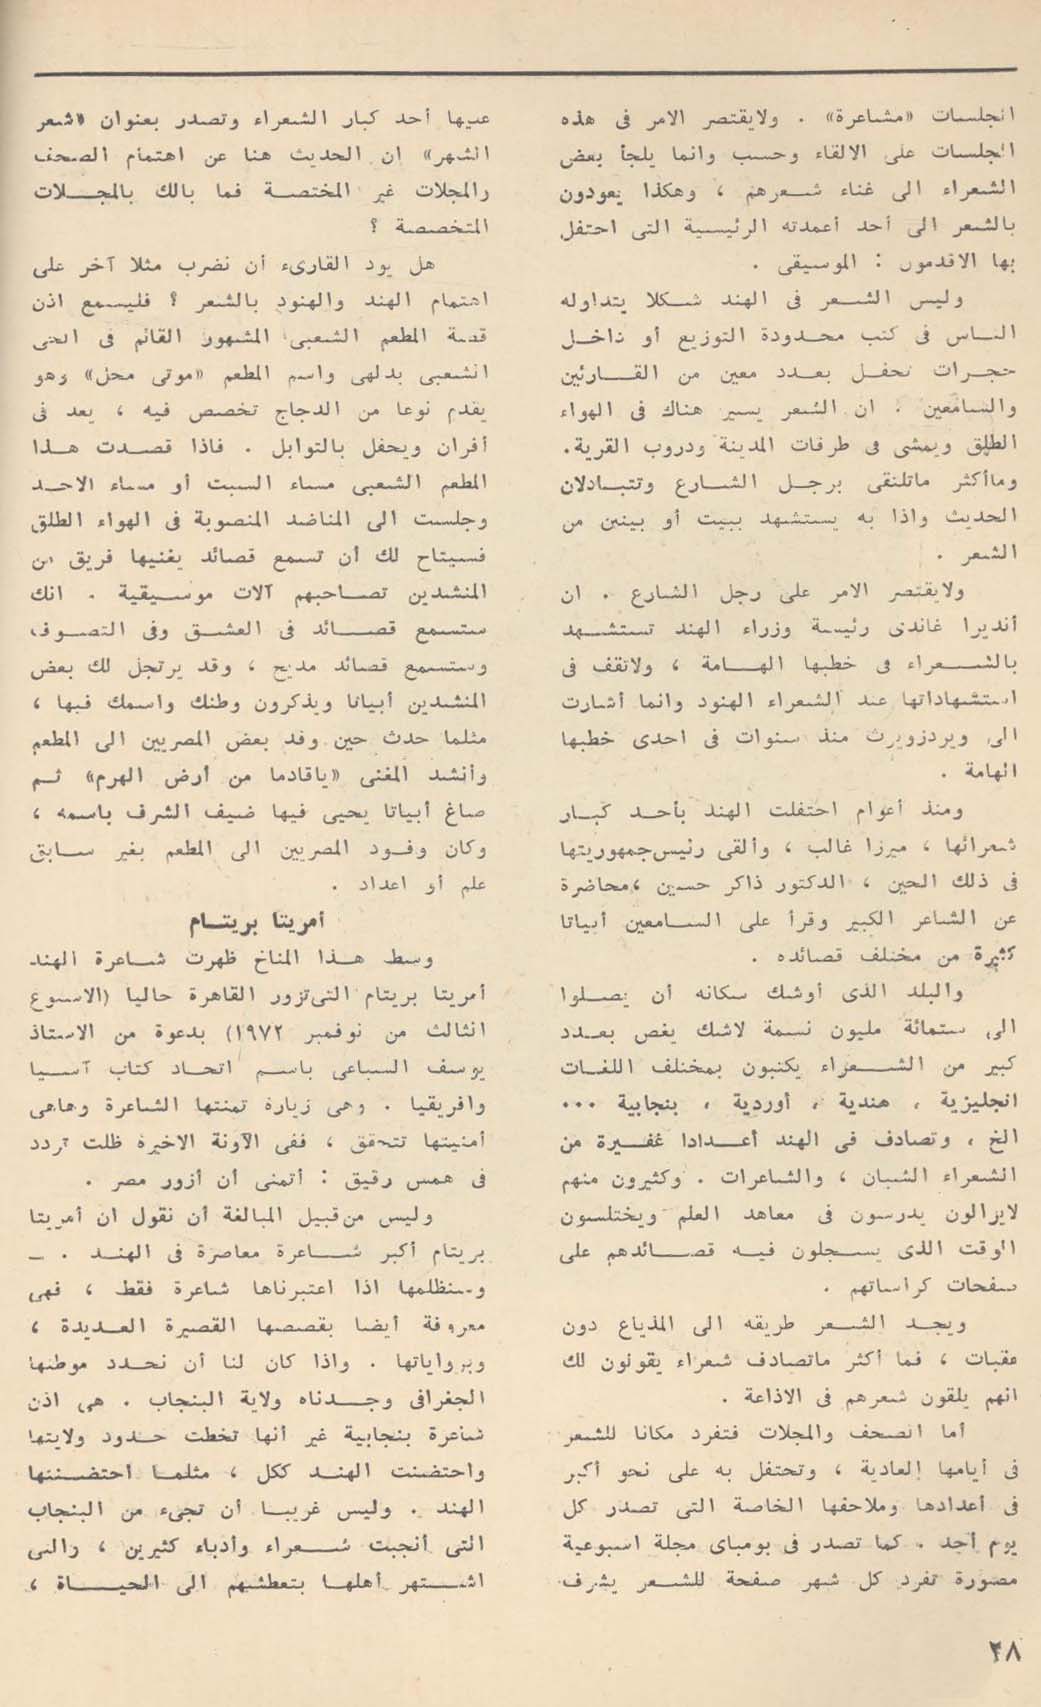 الجلسات «مشاعرة» . ولايقتصر الامر فى هذه
الجلسات على الالقاء وحسب وانما يلجأ بعض
الشعراء الى غناء شعرهم ، وهكذا يعودون
بالشعر الى أحد أعمدته الرئيسية التى احتفل
بها الاقدمون : الموسيقى .
وليس الشعر فى الهند شكلا يتداوله
الناس فى كتب محدودة التوزيع أو داخل
حجرات تحفل بعدد معين من القارئين
والسامعين . ان الشعر يسير هناك فى الهواء
الطلق ويمشى فى طرقات المدينة ودروب القرية.
وماأكثر ماتلتقى برجل الشارع وتتبادلان
الحديث واذا به يستشهد ببيت أو بيتين من
الشعر .
ولايقتصر الامر على رجل الشارع . ان
أنديرا غاندى رئيسة وزراء الهند تستشهد
بالشعراء فى خطبها الهامة ، ولاتقف فى
استشهاداتها عند الشعراء الهنود وانما أشارت
الى ويردزويرث منذ سنوات فى احدى خطبها
الهامة .
ومنذ أعوام احتفلت الهند بأحد كبار
شعرائها ، ميرزا غالب ، وألقى رئيس جمهوريتها
فى ذلك الحين ، الدكتور ذاكر حسين ، محاضرة
عن الشاعر الكبير وقرأ على السامعين أبياتا
كثيرة من مختلف قصائده .
والبلد الذى أوشك سكانه أن يصلوا
الى ستمائة مليون نسمة لاشك يغص بعدد
كبير من الشعراء يكتبون بمختلف اللغات
انجليزية ، هندية ، أوردية ، بنجابية ...
الخ ، وتصادف فى الهند أعدادا غفيرة من
الشعراء الشبان ، والشاعرات . وكثيرون منهم
لايزالون يدرسون فى معاهد العلم ويختلسون
الوقت الذى يسجلون فيه قصائدهم على
صفحات كراساتهم .
ويجد الشعر طريقه الى المذياع دون
عقبات ، فما أكثر ماتصادف شعراء يقولون لك
انهم يلقون شعرهم فى الاذاعة .
أما الصحف والمجلات فتفرد مكانا للشعر
فى أيامها العادية ، وتحتفل به على نحو أكبر
فى أعدادها وملاحقها الخاصة التى تصدر كل
يوم أحد . كما تصدر فى بومباى مجلة اسبوعية
مصورة تفرد كل شهر صفحة للشعر يشرف
عليها أحد كبار الشعراء وتصدر بعنوان «شعر
الشهر» ان الحديث هنا عن اهتمام الصحف
والمجلات غير المختصة فما بالك بالمجلات
المتخصصة ؟
هل يود القارىء أن نضرب مثلا آخر على
اهتمام الهند والهنود بالشعر ؟ فليسمع اذن
قصة المطعم الشعبى المشهور القائم فى الحى
الشعبى بدلهى واسم المطعم «موتى محل» وهو
يقدم نوعا من الدجاج تخصص فيه ، يعد فى
أفران ويحفل بالتوابل . فاذا قصدت هذا
المطعم الشعبى مساء السبت أو مساء الاحد
وجلست الى المناضد المنصوبة فى الهواء الطلق
فسيتاح لك أن تسمع قصائد يغنيها فريق من
المنشدين تصاحبهم آلات موسيقية . انك
ستسمع قصائد فى العشق وفى التصوف،
وستسمع قصائد مديح ، وقد يرتجل لك بعض
المنشدين أبياتا ويذكرون وطنك واسمك فيها ،
مثلما حدث حين وفد بعض المصريين الى المطعم
وأنشد المغنى «ياقادما من أرض الهرم» ثم
صاغ أبياتا يحيى فيها ضيف الشرف باسمه ،
وكان وفود المصريين الى المطعم بغير سابق
علم أو اعداد .
أمريتا بريتام
وسط هذا المناخ ظهرت شاعرة الهند
أمريتا بريتام التى تزور القاهرة حاليا (الاسبوع
الثالث من نوفمبر ١٩٧٢) بدعوة من الاستاذ
يوسف السباعى باسم اتحاد كتاب آسيا
وافريقيا . وهى زيارة تمنتها الشاعرة وهاهى
أمنيتها تتحقق ، ففى الآونة الاخيرة ظلت تردد
فى همس رقيق : أتمنى أن أزور مصر .
وليس من قبيل المبالغة أن نقول ان أمريتا
بريتام أكبر شاعرة معاصرة فى الهند . ـ
وسنظلمها اذا اعتبرناها شاعرة فقط ، فهى
معروفة أيضا بقصصها القصيرة العديدة ،
وبرواياتها . واذا كان لنا أن نحدد موطنها
الجغرافى وجدناه ولاية البنجاب . هى اذن
شاعرة بنجابية غير أنها تخطت حدود ولايتها
واحتضنت الهند ككل ، مثلما احتضنتها
الهند . وليس غريبا أن تجىء من البنجاب
التى أنجبت شعراء وأدباء كثيرين ، والتى
اشتهر أهلها بتعطشهم الى الحياة ،
٢٨